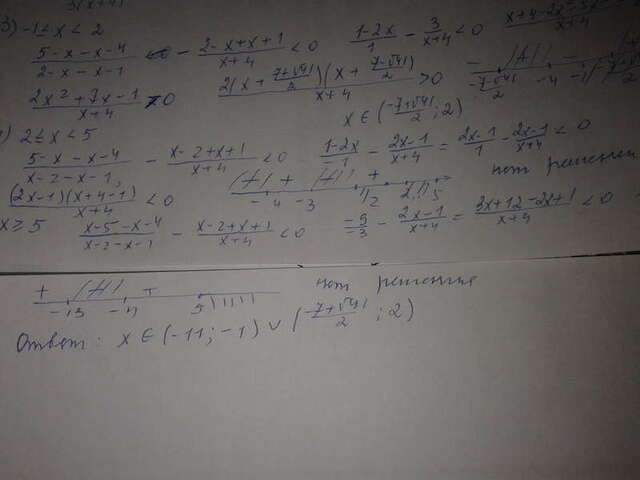 3) -1≤x<2
(5-x-x-4)/(2-x-x-1) - (2-x+x+1)/(x+4) < 0 (1-2x)/1 - 3/(x+4) < 0
(2x²+7x-1)/(x+4) > 0 2(x+(7+√41)/2)(x+(7-√41)/2)/(x+4) > 0
x ∈ ((-7+√41)/2; 2)
2≤x<5
(5-x-x-4)/(x-2-x-1) - (x-2+x+1)/(x+4) < 0 (1-2x)/(-1) - (2x-1)/(x+4) = (2x-1)/1 - (2x-1)/(x+4) < 0
(2x-1)(x+4-1)/(x+4) < 0 + + -4 -3 1/2 2 5 нет решений
x≥5 (x-5-x-4)/(x-2-x-1) - (x-2+x+1)/(x+4) < 0 (-9)/(-3) - (2x-1)/(x+4) = (3x+12-2x+1)/(x+4) < 0
+ + -13 -4 5 нет решения
Ответ: x ∈ (-11; -1) ∪ ((-7+√41)/2; 2)